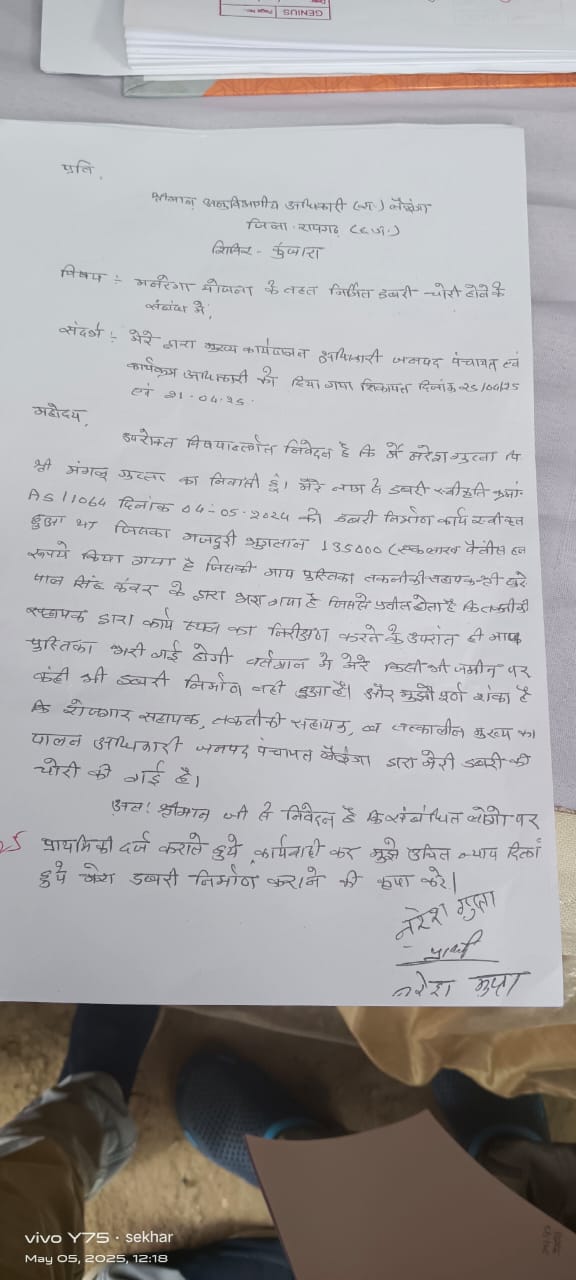 GENIUS
Page No.
प्रति,
श्रीमान अनुविभागीय अधिकारी (रा.) लैलूंगा
जिला - रायगढ़ (छ.ग.)
शिविर - कुंजारा
विषय :- मनरेगा योजना के तहत निर्मित डबरी चोरी होने के
संबंध में,
संदर्भ :- मेरे द्वारा मुख्य कार्यपालन अधिकारी जनपद पंचायत एवं
कार्यक्रम अधिकारी को दिया गया शिकायत दिनांक 25/04/25
एवं 21.04.25.
महोदय,
उपरोक्त विषयान्तर्गत निवेदन है कि मैं नरेश गुप्ता पि.
श्री मंगलू गुप्ता का निवासी हूं। मेरे नाम से डबरी स्वीकृति क्रमां-
AS11064 दिनांक 04-05-2024 को डबरी निर्माण कार्य स्वीकृत
हुआ था जिसका मजदूरी भुगतान 135000 (एक लाख पैंतीस हजा
रूपये किया गया है जिसकी माप पुस्तिका तकनीकी सहायक श्री
पाल सिंह कंवर के द्वारा भरा गया है जिससे प्रतीत होता है कि तकनीकी
सहायक द्वारा कार्य स्थल का निरीक्षण करने के उपरांत ही माप
पुस्तिका भरी गई होगी वर्तमान में मेरे किसी भी जमीन पर
कहीं भी डबरी निर्माण नहीं हुआ है। और मुझे पूर्ण शंका है
कि रोजगार सहायक, तकनीकी सहायक, व तत्कालीन मुख्य का
पालन अधिकारी जनपद पंचायत लैलूंगा द्वारा मेरी डबरी की
चोरी की गई है।
अतः श्रीमान जी से निवेदन है कि संबंधित लोगो पर
प्राथमिकी दर्ज कराते हुये कार्यवाही कर मुझे उचित न्याय दिलां
हुये मेरा डबरी निर्माण कराने की कृपा करें।
नरेश गुप्ता
प्रार्थी
नरेश गुप्ता
vivo Y75 · sekhar
May 05, 2025, 12:18